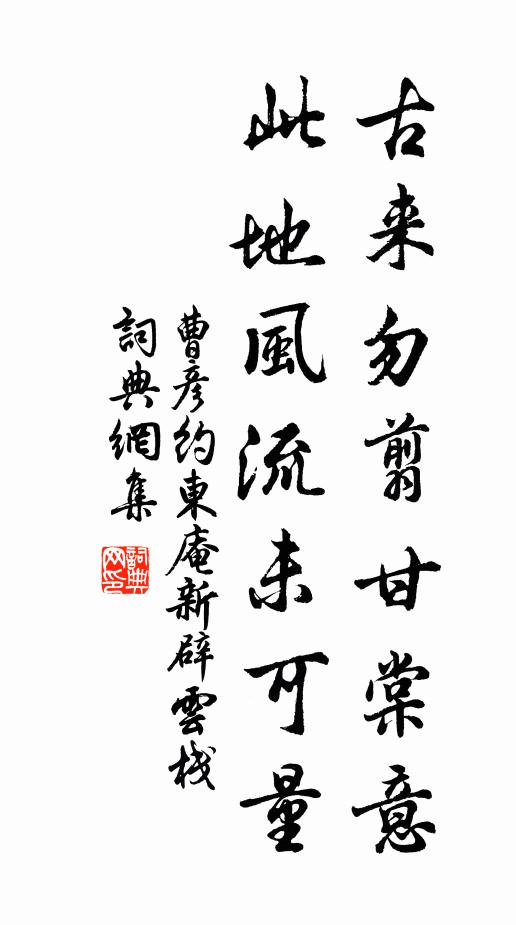 古来勿翦甘棠意
此地風流未可量
曹彦約東庵新辟雲棧
詞典網集
詞典网印